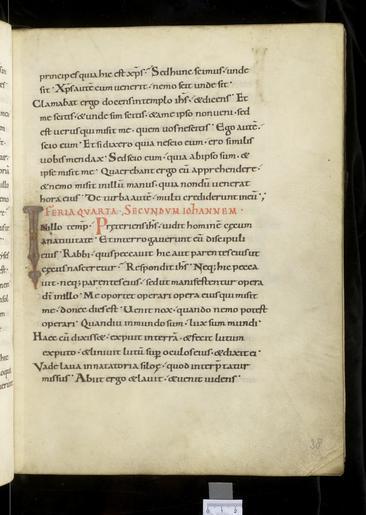 principes quia hic est xp̅s · Sed hunc scimus unde
sit · Xp̅s aute̅ cum venerit · nemo scit unde sit ·
Clamabat ergo docens in templo ih̅s · & dicens · Et
me scitis · & unde sim scitis · & a me ipso non veni · sed
est verus qui misit me · quem vos nescitis · Ego aute̅ ·
scio eum · Et si dixero quia nescio eum · ero similis
vobis mendax · Sed scio eum · quia ab ipso sum · &
ipse misit me · Querebant ergo eu̅ apprehendere ·
& nemo misit in illu̅ manus · quia nondu̅ venerat
hora eius · De turba aute̅ · multi crediderunt in eu̅ ;
FERIA QUARTA · SECUNDUM IOHANNEM ·
In illo temp̅ · Preteriens ih̅s · vidit homine̅ cecum
a nativitate · Et interrogaverunt eu̅ discipuli
eius · Rabbi · quis peccavit · hic aut parentes eius ut
cecus nasceretur · Respondit ih̅s · Neq; hic pecca
vit · neq; parentes eius · sed ut manifestentur opera
d̅i in illo · Me oportet operari opera eius qui misit
me · donec dies est · Venit nox · quando nemo potest
operari · Quandiu in mundo sum · lux sum mundi ·
Haec cu̅ dixiss& · expuit in terra̅ · & fecit lutum
ex sputo · & linivit lutu̅ sup̅ oculos eius · & dixit ei ·
Vade lava in natatoria siloe · quod interp̅tatur
missus · Abiit ergo & lavit · & venit videns ·
38